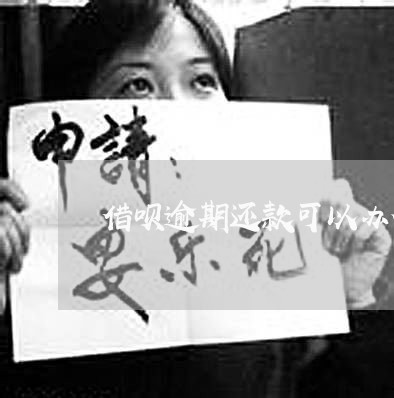 申請：
借呗逾期还款可以办
安乐死